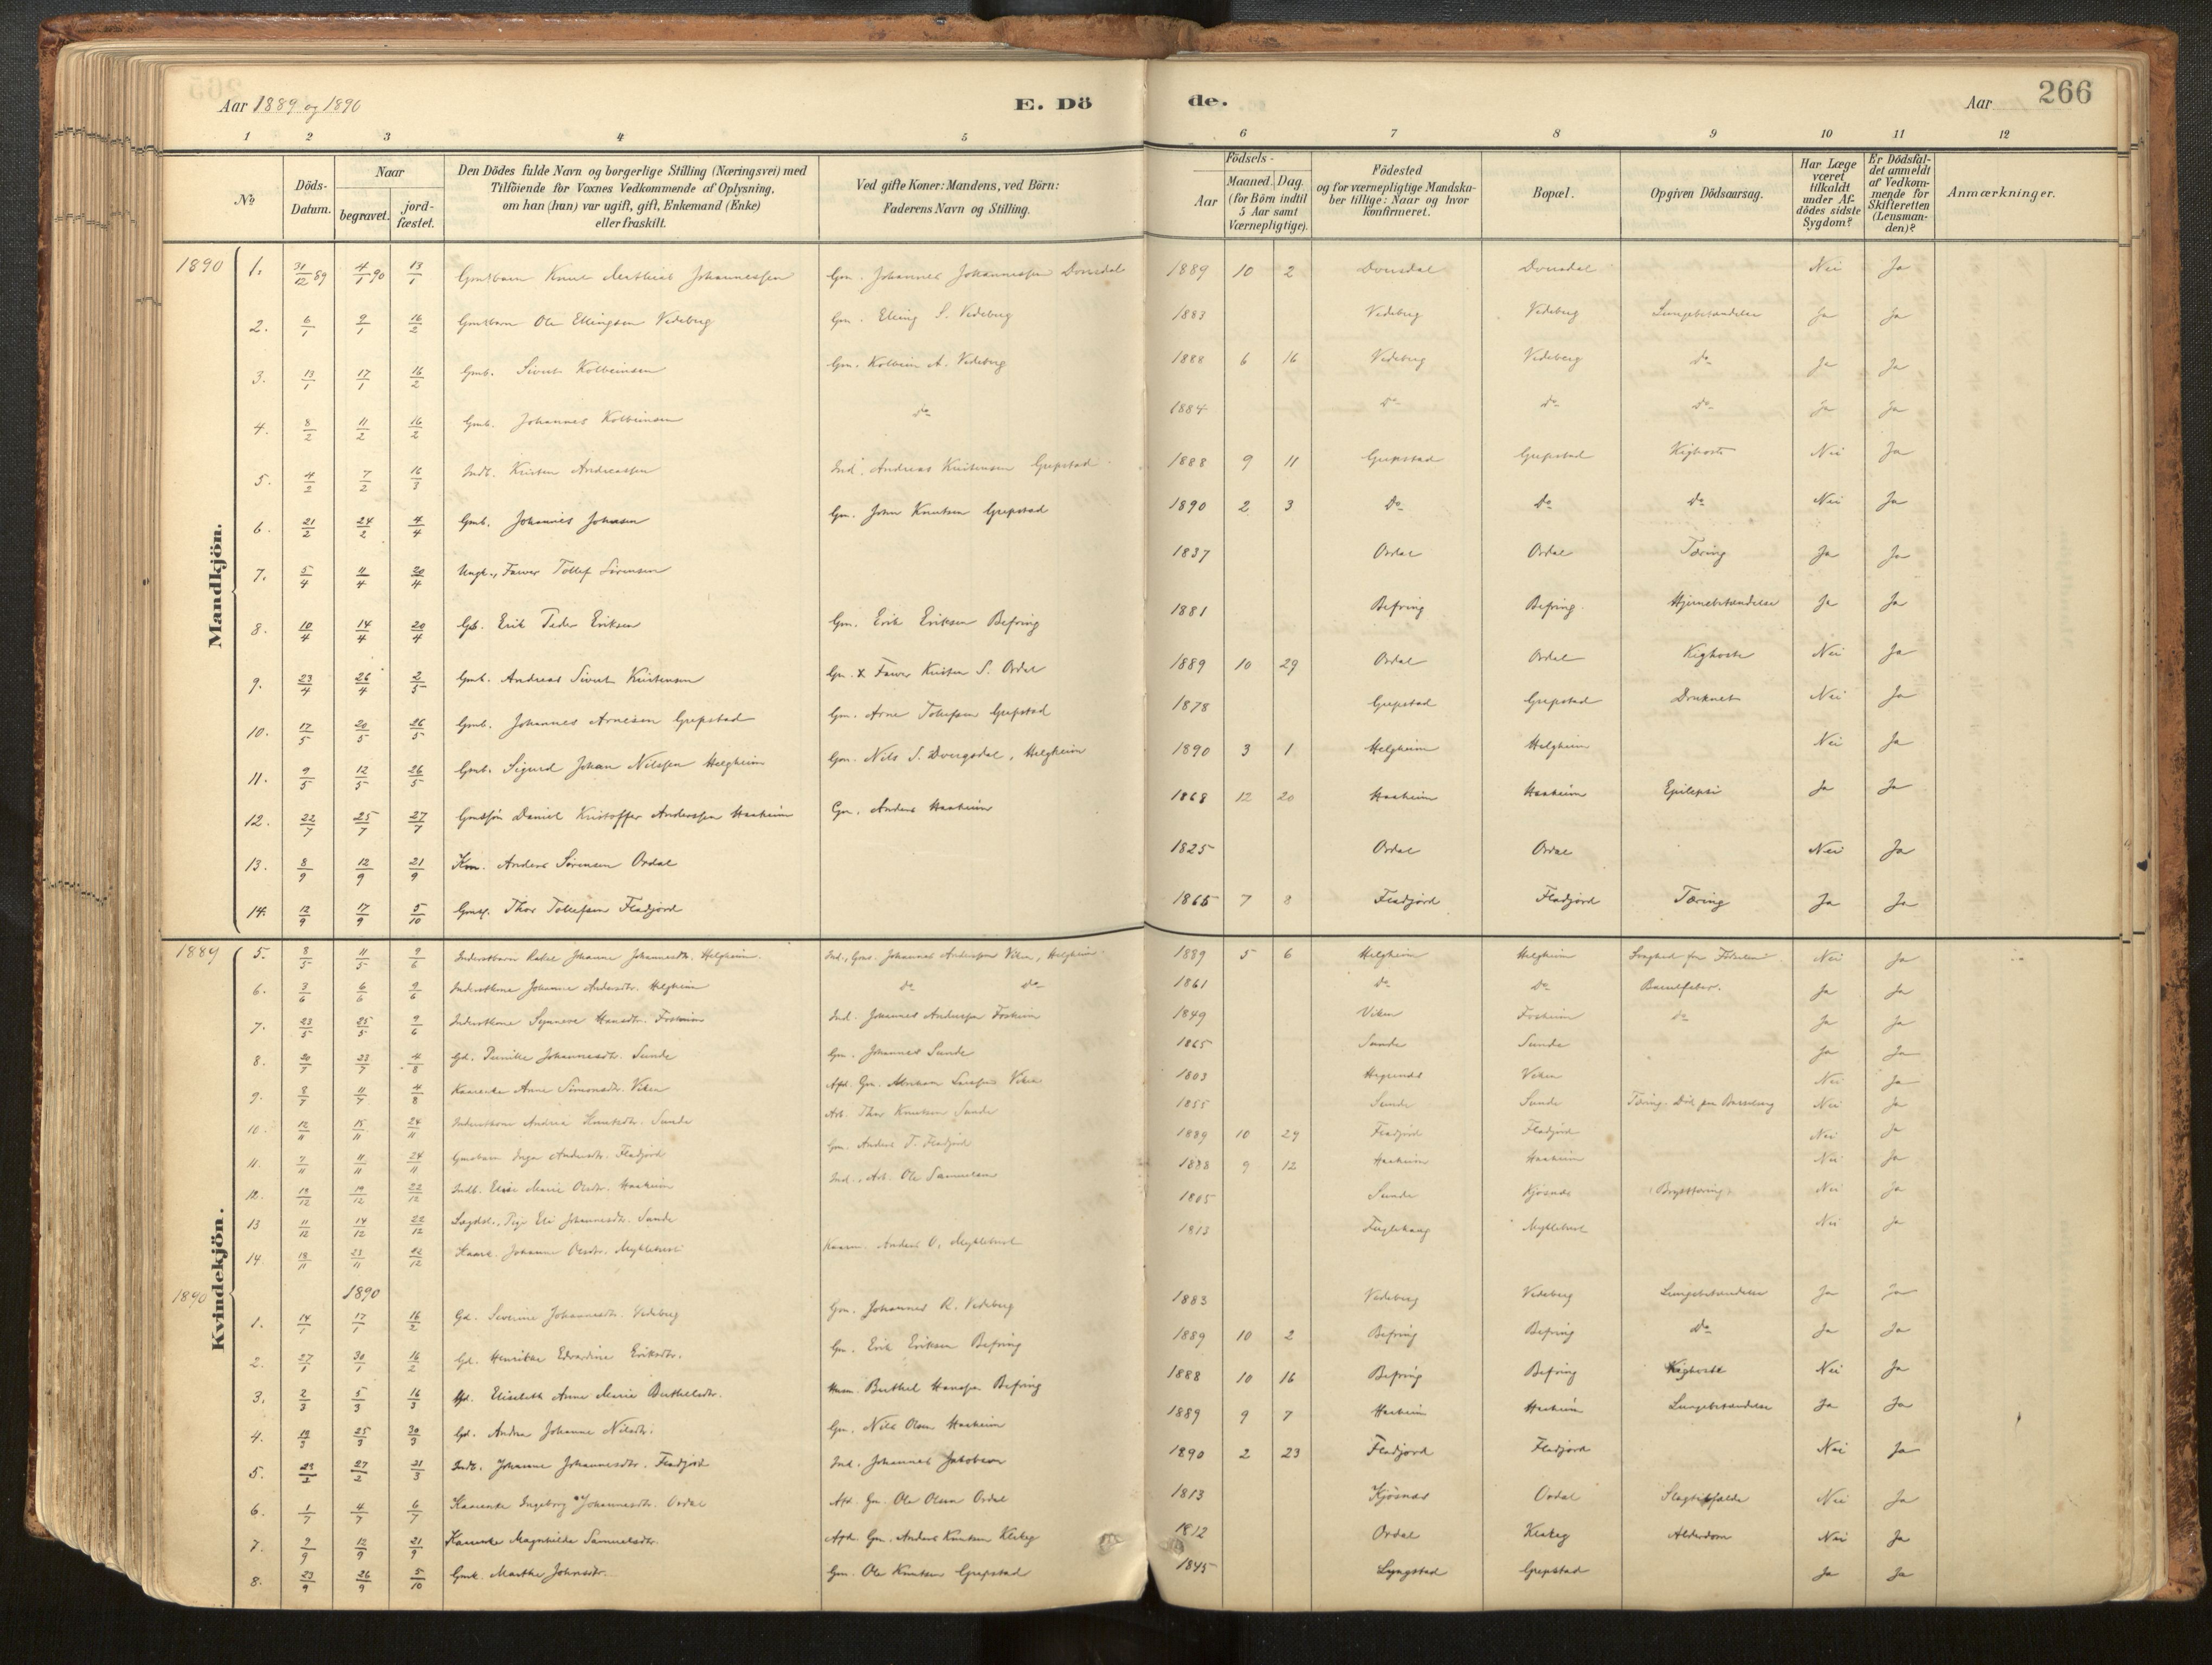 Aar 1889 og 1890
E. Dö
de.
Aar
266
1 2 3 4 5 6 7 8 9 10 11 12
No
Döds-Datum.
Naar
begravet.
jord-fæstet.
Den Dödes fulde Navn og borgerlige Stilling (Næringsvei) med
Tilföiende for Voxnes Vedkommende af Oplysning,
om han (hun) var ugift, gift, Enkemand (Enke)
eller fraskilt.
Ved gifte Koner: Mandens, ved Börn:
Faderens Navn og Stilling.
Födsels-
Aar
Maaned. Dag.
(for Börn indtil
5 Aar samt
Værnepligtige).
Födested
og for værnepligtige Mandska-
ber tillige: Naar og hvor
konfirmeret.
Bopæl.
Opgiven Dödsaarsag.
Har Læge
været
tilkaldt
under Af-
dödes sidste
Sygdom?
Er Dödsfal-
det anmeldt
af Vedkom-
mende for
Skifteretten
(Lensman-
den)?
Anmærkninger.
Mandkjön.
1890 1. 31/12 89 4/1 90 13/1 Gmdbarn Knut Mathias Johannessen Gm. Johannes Johannessen Dvergsdal 1889 10 2 Nei Ja
2. 6/1 9/1 16/2 Gmdbarn Ole Ellingsen Vedeberg Gm. Elling S. Vedeberg 1883 Vedeberg Vedeberg Lungebetændelse Ja Ja
3. 13/1 17/1 16/2 Gmb. Sivert Kolbeinsen Gm. Kolbein A. Vedeberg 1888 6 16 Vedeberg Vedeberg do Ja Ja
4. 8/2 11/2 16/2 Gmb. Johannes Kolbeinsen do 1884 do do do Ja Ja
5. 4/2 7/2 16/3 Indb. Kristen Andreassen Ind. Andreas Kristensen Grepstad 1888 9 11 Grepstad Grepstad Kighoste Nei Ja
6. 21/2 24/2 4/4 Gmb. Johannes Johnsen Gm. John Knutsen Grepstad 1890 2 3 Do Do Do Nei Ja
7. 5/4 11/4 20/4 Ungk., Farver Tollef Sørensen 1837 Ordal Ordal Tæring Ja Ja
8. 10/4 14/4 20/4 Gb. Erik Peder Eriksen Gm. Erik Eriksen Befring 1881 Befring Befring Hjernebetændelse Ja Ja
9. 23/4 26/4 2/5 Gmb. Andreas Sivert Kristensen Gm. & Farver Kristen S. Ordal 1889 10 29 Ordal Ordal Kighoste Nei Ja
10. 17/5 20/5 26/5 Gmb. Johannes Arnesen Grepstad Gm. Arne Tollefsen Grepstad 1878 Grepstad Grepstad Druknet Nei Ja
11. 9/5 12/5 26/5 Gmb. Sigurd Johan Nilssen Helgheim Gm. Nils S. Dvergsdal, Helgheim 1890 3 1 Helgheim Helgheim Nei Ja
12. 22/7 25/7 27/7 Gmdsøn Daniel Kristoffer Anderssen Haaheim Gm. Anders Haaheim 1868 12 20 Haaheim Haaheim Epilepsi Ja Ja
13. 8/9 12/9 21/9 Km. Anders Sørensen Ordal 1825 Ordal Ordal Nei Ja
14. 12/9 17/9 5/10 Thor Tollefsen Fladjord 1865 7 8 Fladjord Fladjord Tæring Ja Ja
Kvindekjön.
1889 5. 8/5 11/5 9/6 Inderstbarn Rakel Johanne Johannesdtr. Helgheim Ind., Johannes Andersson Viken, Helgheim 1889 5 6 Helgheim Helgheim Svaghed fra Fødselen Nei Ja
6. 3/6 6/6 9/6 Inderstkone Johanne Andersdtr. Helgheim do do 1861 do do Barselfeber. Ja Ja
7. 23/5 25/5 9/6 Inderstkone Synneve Hansdtr. Fosheim Ind. Johannes Anderssen Fosheim 1849 Viken Fosheim do Ja Ja
8. 20/7 23/7 4/8 Gd. Pernille Johannesdtr. Sunde Gm. Johannes Sunde 1865 Sunde Sunde Ja Ja
9. 8/7 11/7 4/8 Kaarenke Anne Simonsdtr. Viken Afd. Gm. Abraham Larssen Viken 1803 Viken Nei Ja
10. 12/11 15/11 24/11 Inderstkone Andrea Knutsdtr. Sunde Arb. Thor Knutsen Sunde 1855 Sunde Sunde Tæring. Nei Ja
11. 7/11 11/11 24/11 Gmdbarn Inga Andersdtr. Fladjord Gm. Anders T. Fladjord 1889 10 29 Fladjord Fladjord Nei Ja
12. 14/12 19/12 22/12 Indb. Elise Marie Olsdtr. Haaheim Ind., Arb. Ole Samuelsen 1888 9 12 Haaheim Haaheim Nei Ja
13 11/12 14/12 22/12 Lægdsl., Pige Eli Johannesdtr. Sunde 1805 Sunde Kjøsnes Brysttæring Nei Ja
14. 18/11 23/11 22/12 Kaark. Johanne Olsdtr. Myklebust Kaarm. Anders O. Myklebust 1813 Fuglehaug Myklebust Nei Ja
1890 1890
1. 14/1 17/1 16/2 Gd. Severine Johannesdtr. Vedeberg Gm. Johannes R. Vedeberg 1883 Vedeberg Vedeberg Lungebetændelse Ja Ja
2. 27/1 30/1 16/2 Gd. Henrikke Edvardine Eriksdtr. Gm. Erik Eriksen Befring 1889 10 2 Befring Befring Do Ja Ja
3. 2/3 5/3 16/3 Gd. Elisabeth Anne Marie Berthelsdtr. Husm. Berthel Hanssen Befring 1888 10 16 Befring Befring Kighoste Nei Ja
4. 19/3 25/3 30/3 Gd. Andrea Johanne Nilsdtr. Gm. Nils Olsen Haaheim 1889 9 7 Haaheim Haaheim Lungebetændelse Ja Ja
5. 23/2 27/2 21/3 Indb. Johanne Johannesdtr. Fladjord Ind. Johannes Jakobsen 1890 2 23 Fladjord Fladjord Nei Ja
6. 1/7 4/7 6/7 Kaarenke Ingeborg Johannesdtr. Ordal Afd. Gm. Ole Olsen Ordal 1813 Kjøsnes Ordal Slagtilfælde Nei Ja
7. 9/9 12/9 21/9 Kaarenke Magnhilde Samuelsdtr. Afd. Gm. Anders Knutsen Klakeg 1812 Ordal Klakeg Alderdom Nei Ja
8. 23/9 26/9 5/10 Gmk. Marthe Johnsdtr. Gm. Ole Knutsen Grepstad 1845 Lyngstad Grepstad Ja Ja